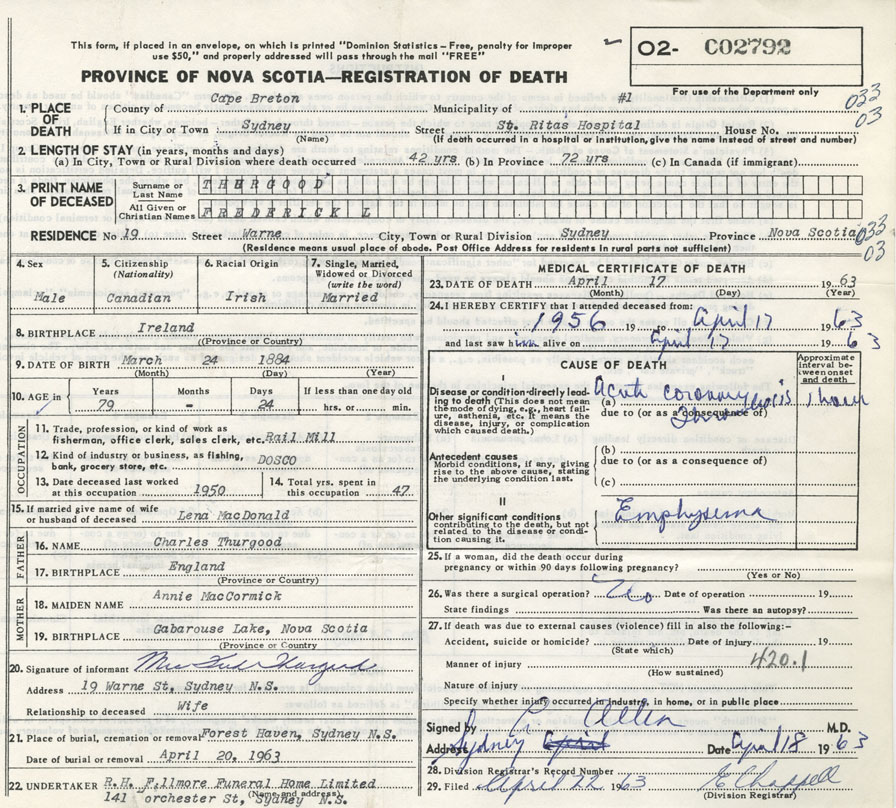 This form, if placed in an envelope, on which is printed "Dominion Statistics - Free, penalty for improper
use $50," and properly addressed will pass through the mail "FREE"
O2- CO2792
PROVINCE OF NOVA SCOTIA—REGISTRATION OF DEATH
For use of the Department only
1. PLACE OF DEATH
County of Cape Breton Municipality of #1
033
03
If in City or Town Sydney Street St. Ritas Hospital House No.
(Name) (If death occurred in a hospital or institution, give the name instead of street and number)
2. LENGTH OF STAY (in years, months and days)
(a) In City, Town or Rural Division where death occurred 42 yrs (b) In Province 72 yrs (c) In Canada (if immigrant)
3. PRINT NAME OF DECEASED
Surname or Last Name THURGOOD
All Given or Christian Names FREDERICK L
RESIDENCE No. 19 Street Warne City, Town or Rural Division Sydney Province Nova Scotia
033
03
(Residence means usual place of abode. Post Office Address for residents in rural parts not sufficient)
4. Sex
Male
5. Citizenship
(Nationality)
Canadian
6. Racial Origin
Irish
7. Single, Married,
Widowed or Divorced
(write the word)
Married
8. BIRTHPLACE Ireland
(Province or Country)
9. DATE OF BIRTH March 24 1884
(Month) (Day) (Year)
10. AGE in Years Months Days If less than one day old
79 - 24 hrs. or min.
OCCUPATION
11. Trade, profession, or kind of work as
fisherman, office clerk, sales clerk, etc. Rail Mill
12. Kind of industry or business, as fishing,
bank, grocery store, etc. DOSCO
13. Date deceased last worked
at this occupation 1950
14. Total yrs. spent in
this occupation 47
15. If married give name of wife
or husband of deceased Lena MacDonald
FATHER
16. NAME Charles Thurgood
17. BIRTHPLACE England
(Province or Country)
MOTHER
18. MAIDEN NAME Annie MacCormick
19. BIRTHPLACE Gabarouse Lake, Nova Scotia
(Province or Country)
20. Signature of informant Mrs Fred Thurgood
Address 19 Warne St, Sydney N.S.
Relationship to deceased Wife
21. Place of burial, cremation or removal Forest Haven, Sydney N.S.
Date of burial or removal April 20, 1963
22. UNDERTAKER R.H. Fillmore Funeral Home Limited
(Name and address)
141 orchester St, Sydney N.S.
MEDICAL CERTIFICATE OF DEATH
23. DATE OF DEATH April 17 1963
(Month) (Day) (Year)
24. I HEREBY CERTIFY that I attended deceased from:
1956 19 to April 17 1963
and last saw him alive on April 17 1963
CAUSE OF DEATH
Approximate
interval between onset
and death
I
Disease or condition directly leading to death (This does not mean
the mode of dying, e.g., heart failure, asthenia, etc. It means the
disease, injury, or complication
which caused death.)
(a) Acute coronary thrombosis 1 hour
due to (or as a consequence of)
Antecedent causes
Morbid conditions, if any, giving
rise to the above cause, stating
the underlying condition last.
(b)
due to (or as a consequence of)
(c)
II
Other significant conditions
contributing to the death, but not
related to the disease or condition causing it.
Emphysema
25. If a woman, did the death occur during
pregnancy or within 90 days following pregnancy?
(Yes or No)
26. Was there a surgical operation? No Date of operation 19
State findings Was there an autopsy?
27. If death was due to external causes (violence) fill in also the following:-
Accident, suicide or homicide? Date of injury 19
(State which)
Manner of injury 420.1
(How sustained)
Nature of injury
Specify whether injury occurred in industry, in home, or in public place
Signed by Allen M.D.
Address Sydney Date April 18 1963
28. Division Registrar's Record Number
29. Filed April 22 1963 E Chappell
(Division Registrar)